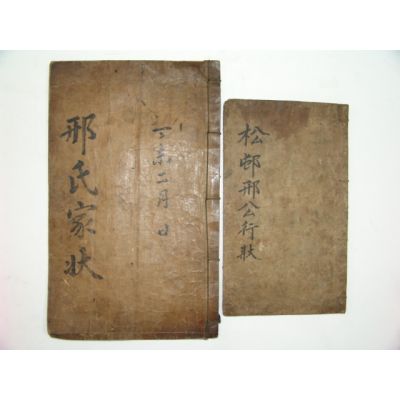 邢氏家狀
未二月 日
松邨邢公行狀